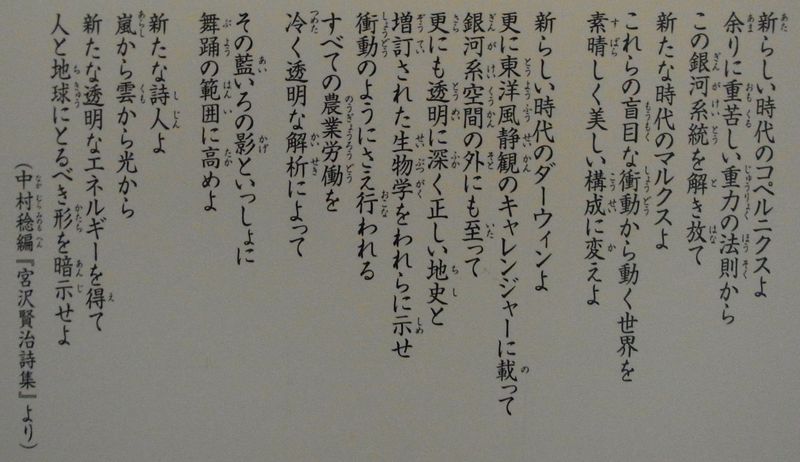 新らしい時代のコペルニクスよ
余りに重苦しい重力の法則から
この銀河系統を解き放て
新たな時代のマルクスよ
これらの盲目な衝動から動く世界を
素晴しく美しい構成に変えよ
新らしい時代のダーウィンよ
更に東洋風静観のキャレンジャーに載って
銀河系空間の外にも至って
更にも透明に深く正しい地史と
増訂された生物学をわれらに示せ
衝動のようにさえ行われる
すべての農業労働を
冷く透明な解析によって
その藍いろの影といっしょに
舞踊の範囲に高めよ
新たな詩人よ
嵐から雲から光から
新たな透明なエネルギーを得て
人と地球にとるべき形を暗示せよ
（中村稔編『宮沢賢治詩集』より）